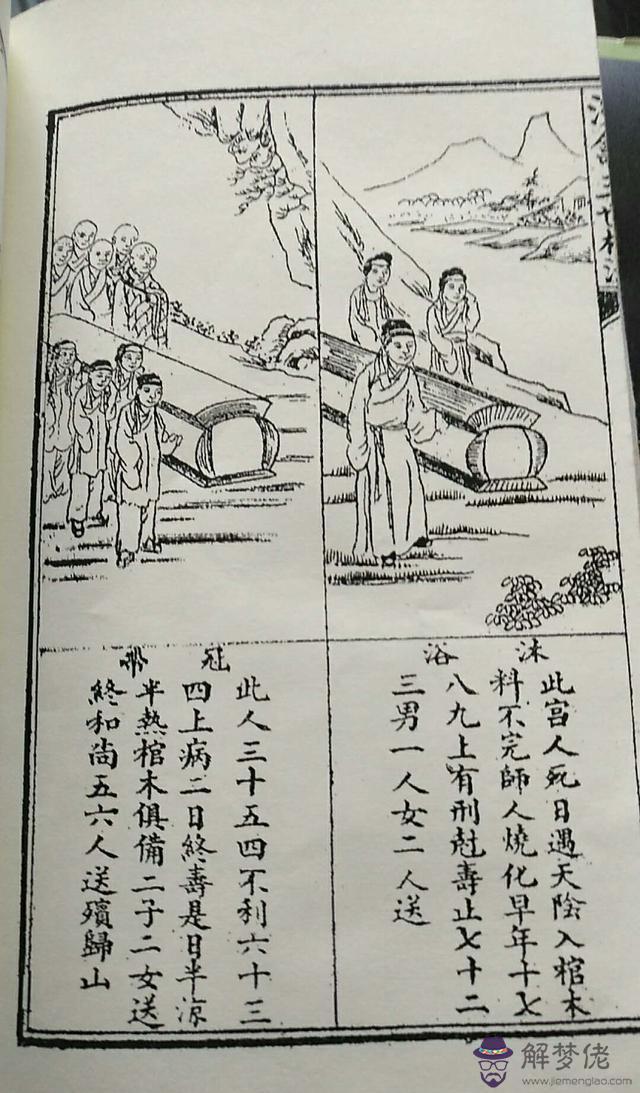 三世相法
沐浴
此宫人死日遇天陰入棺木
料不完師人燒化早年十七
八九上有刑尅壽止七十二
三男一人女二人送
冠帶
此人三十五四不利六十三
四上病二日終壽是日半涼
半熱棺木俱備二子二女送
終和尚五六人送殯歸山
解梦佬
www.jiemenglao.com